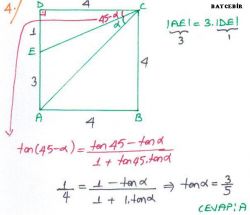 BAYCEBİR
4.
D 4 C
45-α
α
1
E
3
4
A 4 B
|AE| = 3.|DE|
3 1
tan(45-α) = tan45 - tanα / 1 + tan45.tanα
1/4 = 1 - tanα / 1 + 1.tanα ⇒ tanα = 3/5
CEVAP: A